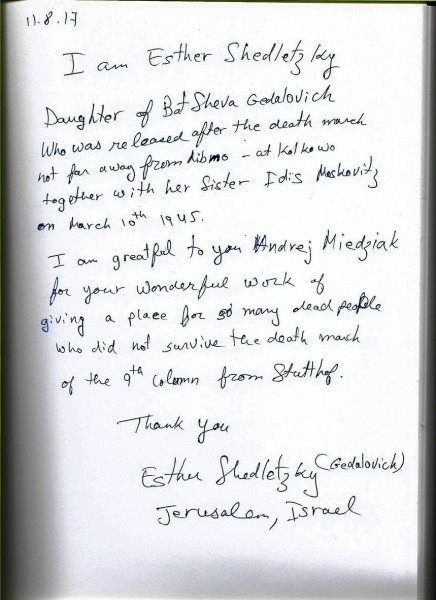 11.8.17
I am Esther Shedletzky
Daughter of BatSheva Gedalovich
Who was released after the death march
not far away from Ribno - at Kolkowo
together with her Sister Idis Moskovitz
on March 10th 1945.
I am greatful to you Andrej Miedziak
for your wonderful work of
giving a place for so many dead people
who did not survive the death march
of the 9th column from Stutthof.
Thank you
Esther Shedletzky (Gedalovich)
Jerusalem, Israel